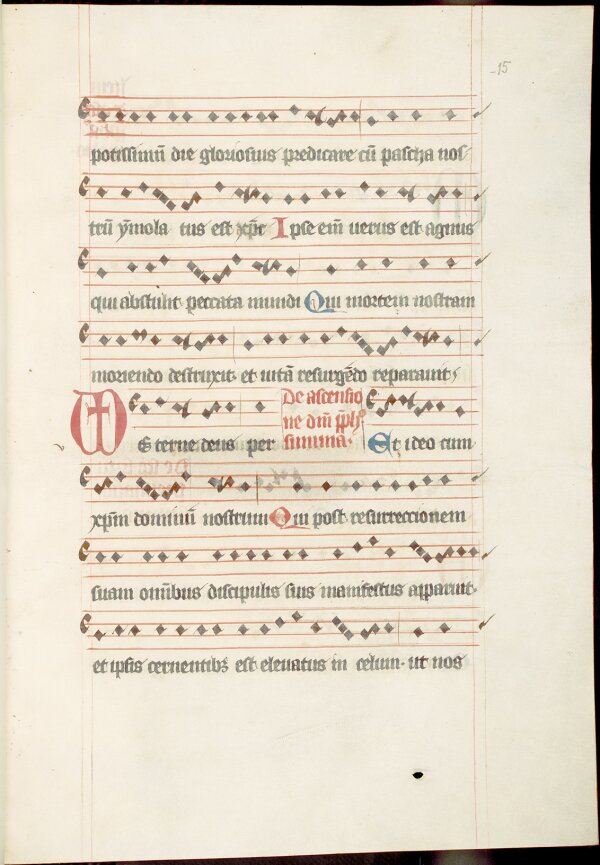 15
potissimū die gloriosius predicare cū pascha nos
trū ymola tus est xp̄c Ipse em̄ uerus est agnus
qui abstulit peccata mundi Qui mortem nostram
moriendo destruxit· et uitā resurgēdo reparauit
De ascensio
ne dn̄i
summa·
E terne deus per
Et ideo cum
xp̄m dominū nostrum Qui post resurreccionem
suam omībus discipulis suis manifestus apparuit·
et ipsis cernentibꝫ est eleuatus in celum· ut nos